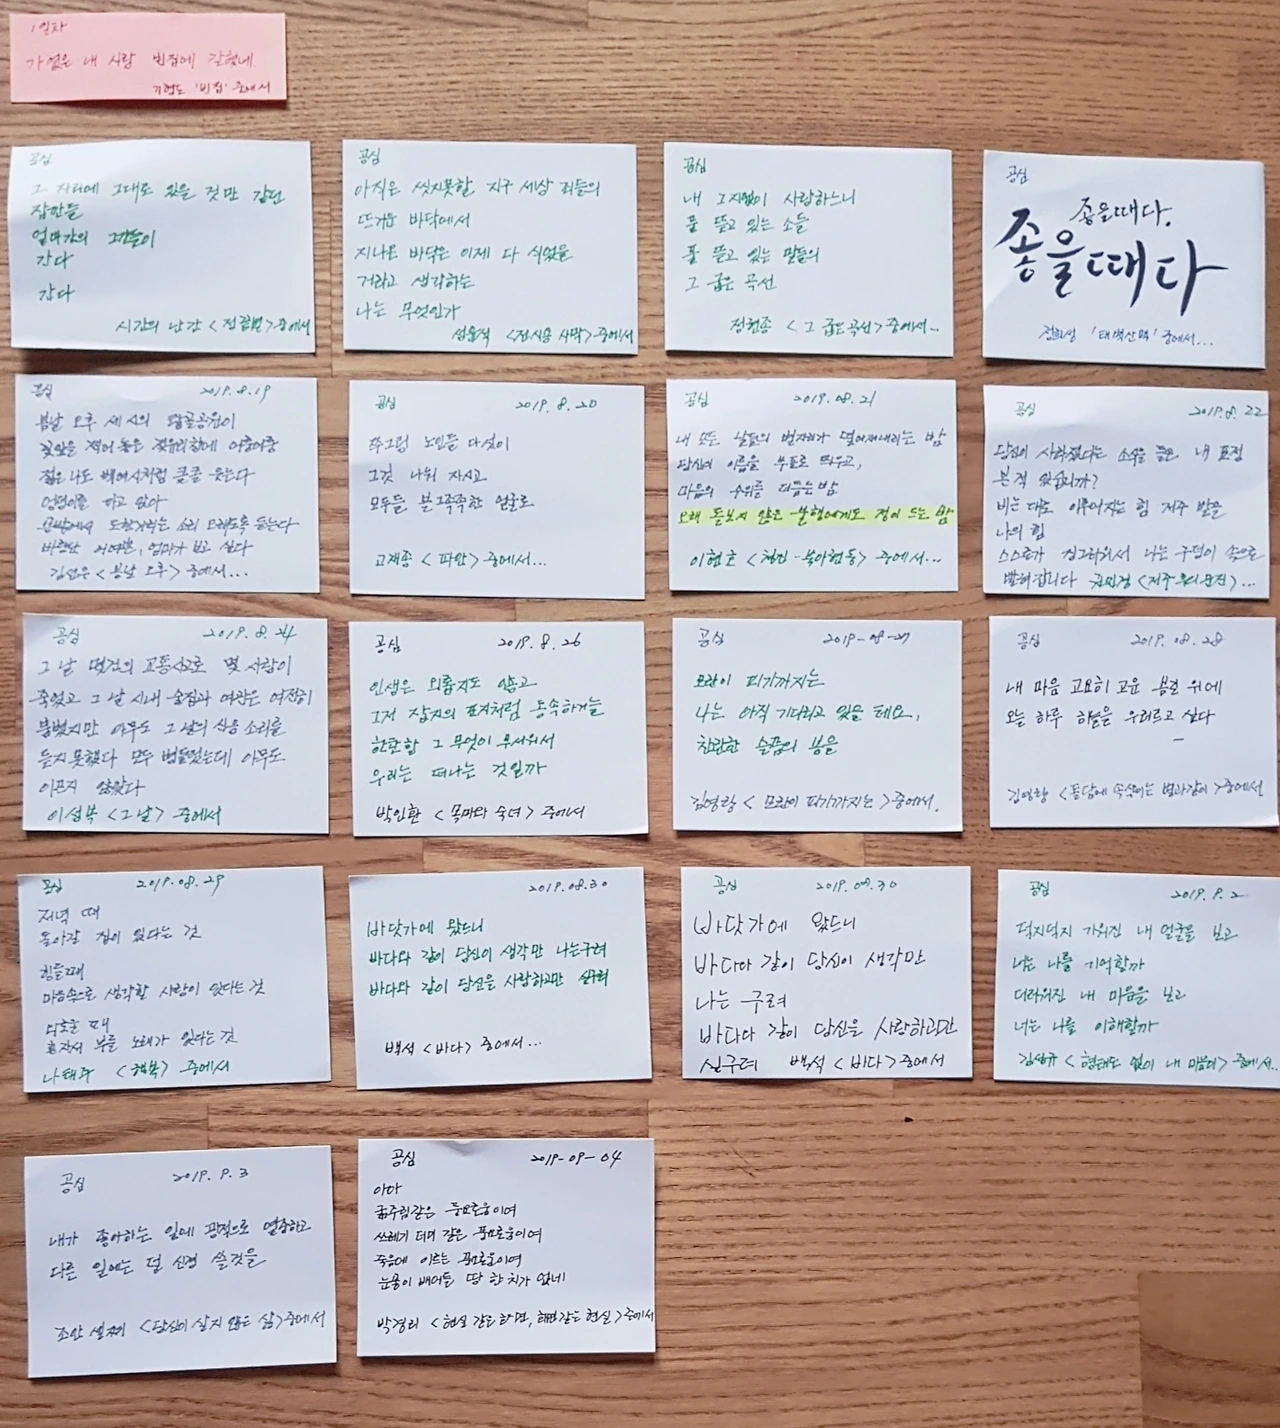 1일차
가엾은 내 사랑 빈집에 갇혔네
기형도 '빈집' 중에서
공심
그 자리에 그대로 있을 것만 같던
잠만들
엄마간의 그것들이
간다
간다
시간의 난간 < > 중에서
공심
아직은 씻지못할 지구 세상 것들의
뜨거운 바닥에서
지나온 바닥은 이제 다 식었을
거라고 생각하는
나는 무엇인가
<전시용 사막> 중에서
공심
내 그지없이 사랑하느니
풀 뜯고 있는 소들
풀 뜯고 있는 말들의
그 굽은 곡선
정현종 <그 굽은 곡선> 중에서...
공심
좋을때다.
좋을때다
정희성 '태백산맥' 중에서...
공심 2019.8.19
봄날 오후 세 시의 탑골공원이
꽃잎을 찍어 놓은 젖유리창에 어룽어룽
젊은 나도 백여시처럼 클클 웃는다
엉덩이를 까고 앉아
문밖에서 도란거리는 소리 오래도록 듣는다
바람난 어여쁜, 엄마가 보고 싶다
김선우 <봄날 오후> 중에서...
공심 2019.8.20
쭈그렁 노인들 다섯이
그것 나눠 자시고
모두들 불그족족한 얼굴로
고재종 <파안> 중에서...
공심 2019.08.21
내 모든 날들의 별자리가 떨어져내리는 밤
당신의 이름을 부표로 띄우고,
마음의 수위를 더듬는 밤
오래 돌보지 않은 불행에게도 정이 드는 밤
이현호 <청진-북아현동> 중에서...
공심 2019.8.22
당신이 사라졌다는 소식을 들은 내 표정
본 적 있습니까?
비는 대로 이루어지는 힘 저주 받을
나의 힘
스스로가 징그러워서 나는 구멍이 속으로
발혀갑니다 권민경 <저주 >...
공심 2019.8.24
그 날 몇건의 교통사고로 몇 사람이
죽었고 그 날 시내 술집과 여관은 여전히
붐볐지만 아무도 그 날의 신음 소리를
듣지 못했다 모두 병들었는데 아무도
아프지 않았다
이성복 <그 날> 중에서
공심 2019.8.26
인생은 외롭지도 않고
그저 잡지의 표지처럼 통속하거늘
한탄할 그 무엇이 무서워서
우리는 떠나는 것일까
박인환 <목마와 숙녀> 중에서
공심 2019-08-27
모란이 피기까지는
나는 아직 기다리고 있을 테요,
찬란한 슬픔의 봄을
김영랑 <모란이 피기까지는> 중에서.
공심 2019.08.28
내 마음 고요히 고운 봄길 위에
오늘 하루 하늘을 우러르고 싶다
김영랑 <돌담에 속삭이는 햇발같이> 중에서
공심 2019.08.29
저녁 때
돌아갈 집이 있다는 것
힘들때
마음속으로 생각할 사람이 있다는 것
외로울 때
혼자서 부를 노래가 있다는 것
나태주 <행복> 중에서
2019.08.30
바닷가에 왔드니
바다와 같이 당신이 생각만 나는구려
바다와 같이 당신을 사랑하고만 싶구려
백석 <바다> 중에서...
공심 2019.08.30
바닷가에 왔드니
바다와 같이 당신이 생각만
나는 구려
바다와 같이 당신을 사랑하고만
싶구려 백석 <바다> 중에서
공심 2019.9.2
덕지덕지 가워진 내 얼굴을 보고
너는 나를 기억할까
더러워진 내 마음을 보고
너는 나를 이해할까
<형태도 없이 내 마음이> 중에서..
공심 2019.9.3
내가 좋아하는 일에 광적으로 열중하고
다른 일에는 덜 신경 쓸것을
<당신이 살지 않은 삶> 중에서
공심 2019-09-04
아아
굶주림같은 풍요로움이여
쓰레기 더미 같은 풍요로움이여
죽음에 이르는 풍요로움이여
눈물이 배어들 땅 한 치가 없네
박경리 <현실 같은 화면, 화면같은 현실> 중에서